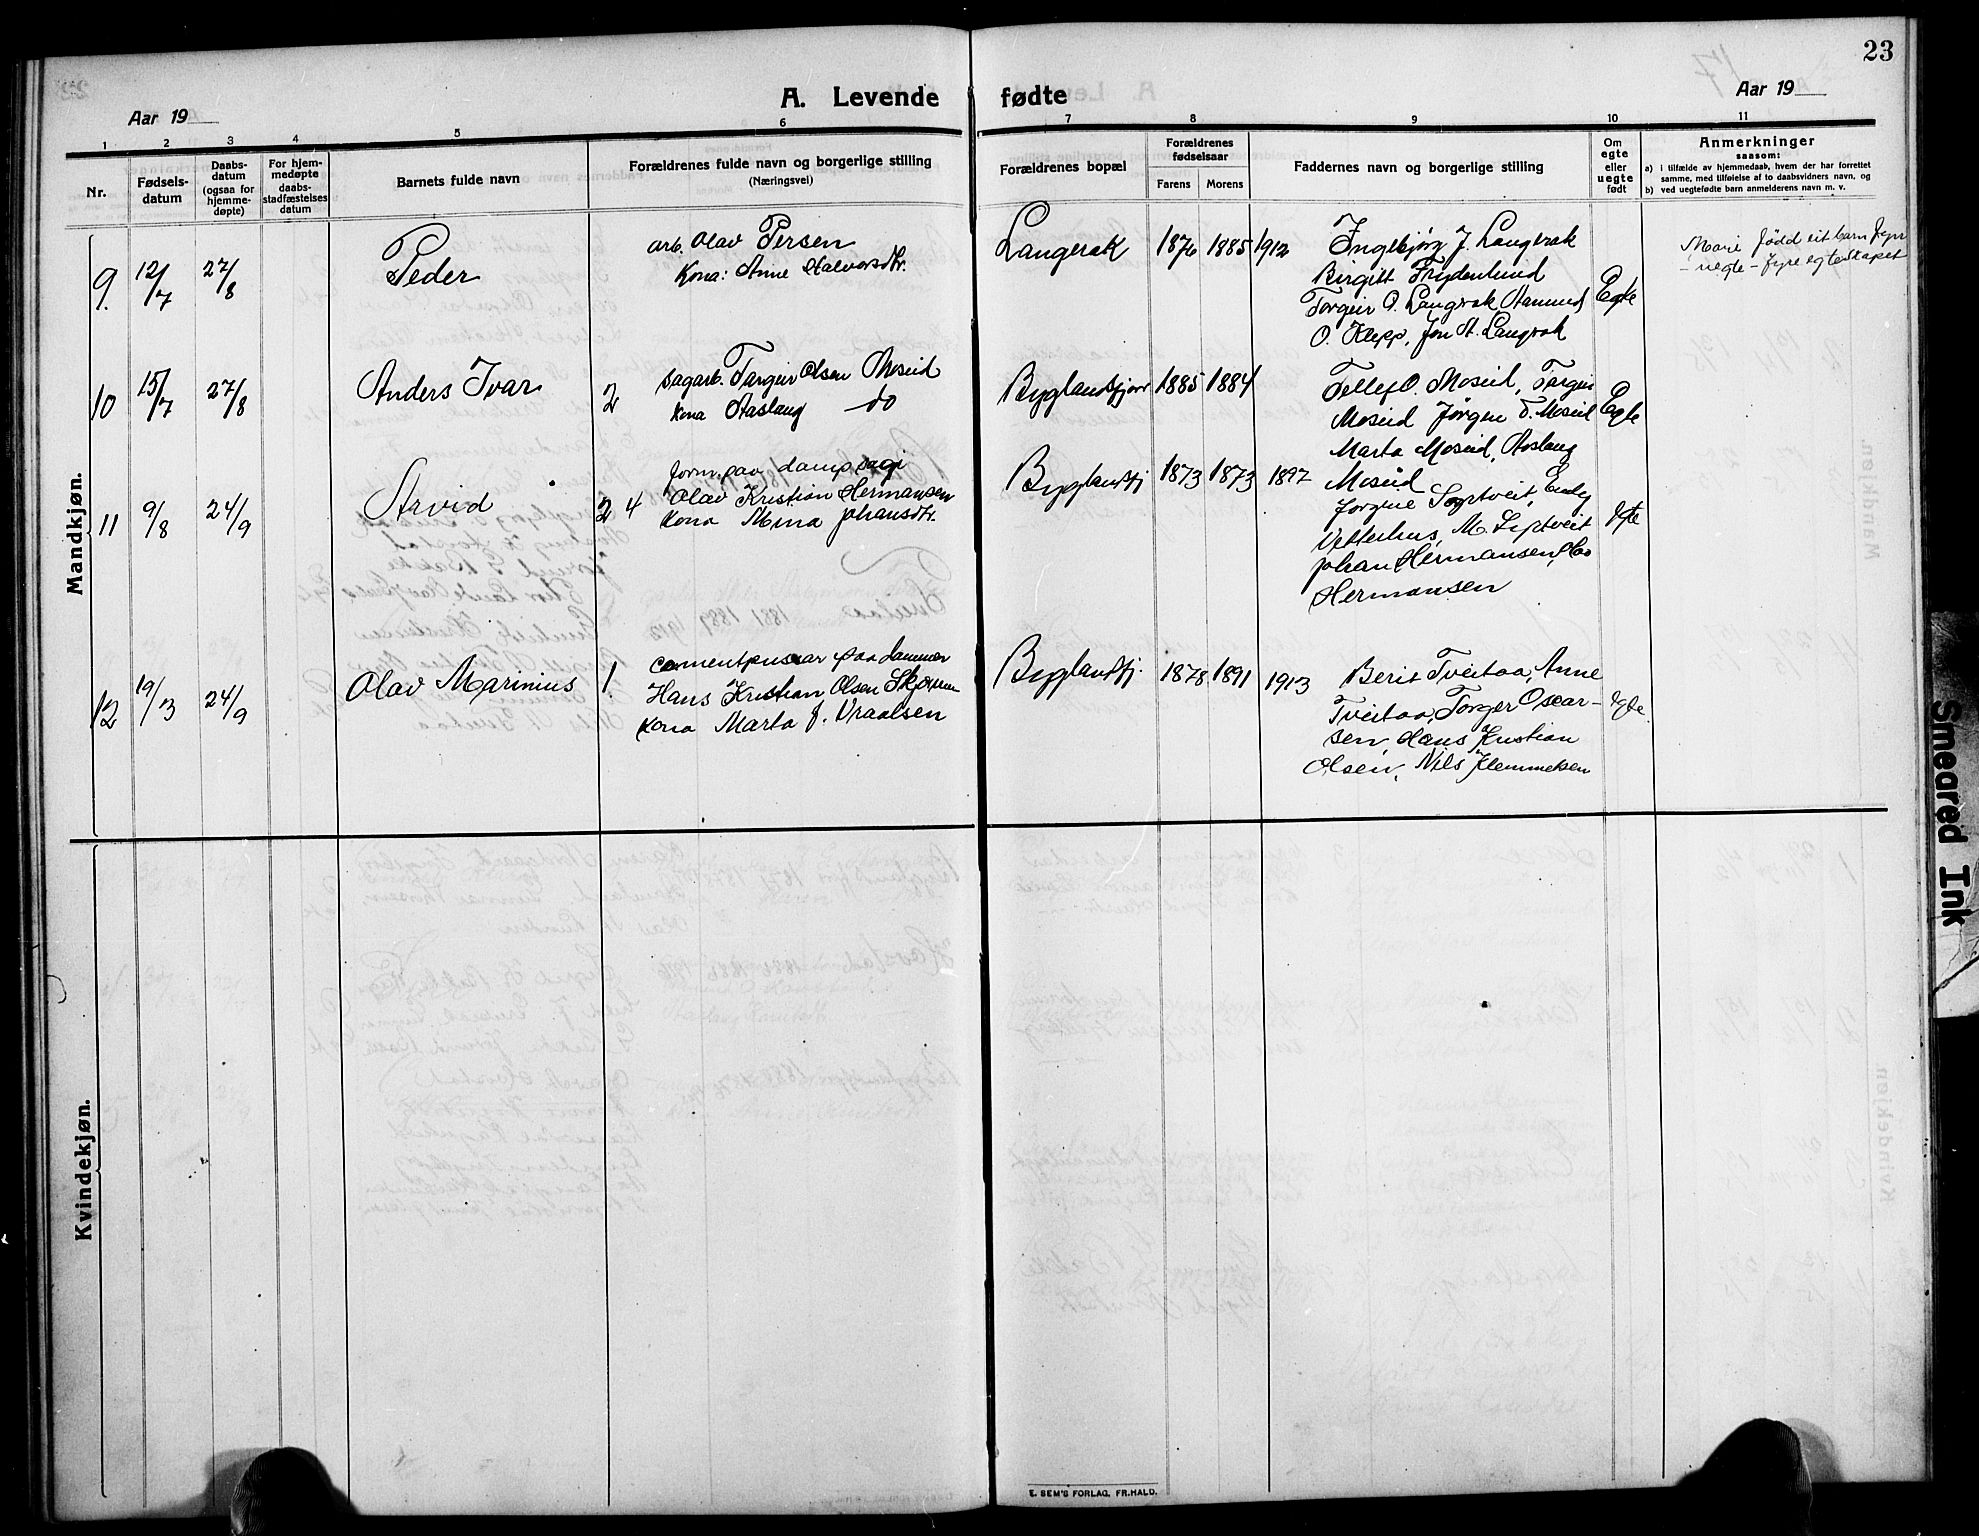 23
A. Levende fødte
Aar 19
Aar 19
1 2 3 4 5 6 7 8 9 10 11
Nr.
Fødsels-
datum
Daabs-
datum
(ogsaa for
hjemme-
døpte)
For hjem-
medøpte
daabs-
stadfæstelses
datum
Barnets fulde navn
Forældrenes fulde navn og borgerlige stilling
(Næringsvei)
Forældrenes bopæl
Forældrenes
fødselsaar
Farens Morens
Faddernes navn og borgerlige stilling
Om
egte
eller
uegte
født
Anmerkninger
saasom:
a) i tilfælde av hjemmedaab, hvem der har forrettet
samme, med tilføielse af to daabsvidners navn, og
b) ved uegtefødte barn anmelderens navn m. v.
Mandkjøn.
9. 12/7 27/8 Peder
arb. Olav Persen
Kona: Anne Halvorsdtr.
Langerak 1876 1885 1912
Ingebjørg J. Langerak
Birgitt Frydenlund
Torgeir O. Langrak, Aamund
O. Klepp, Jon A. Langrak
Egte
Marie Fødd eit barn fyrr
- uegte - fyre egteskapet
10 15/7 27/8 Anders Ivar 2
sagarb. Targeir Olsen Moseid
Kona Aaslaug do
Byglandsfjord 1885 1884
Tellef O. Moseid, Targeir
Moseid Jørgen T. Moseid
Marta Moseid, Aaslaug
Moseid
Egte
11 9/8 24/9 Arvid 2 4
form. paa dampsagi
Olav Kristian Hermansen
Kona Mina Johansdtr.
Byglandsfj 1873 1873 1897
Jorgine
Vetterhus, M.
Johan Hermansen,
Hermansen
egte
12 19/3 24/9 Olav Marinius 1.
cementpussar paa dammen
Hans Kristian Olsen
Kona Marta J. Vraalsen
Byglandsfj. 1878 1891 1913
Berit Tveitaa, Anne
Tveitaa, Torger Oscar-
sen, Hans Kristian
Olsen, Nils Klemmetsen
egte.
Kvindekjøn.
E. SEM'S FORLAG, FR.HALD.
Smeared Ink